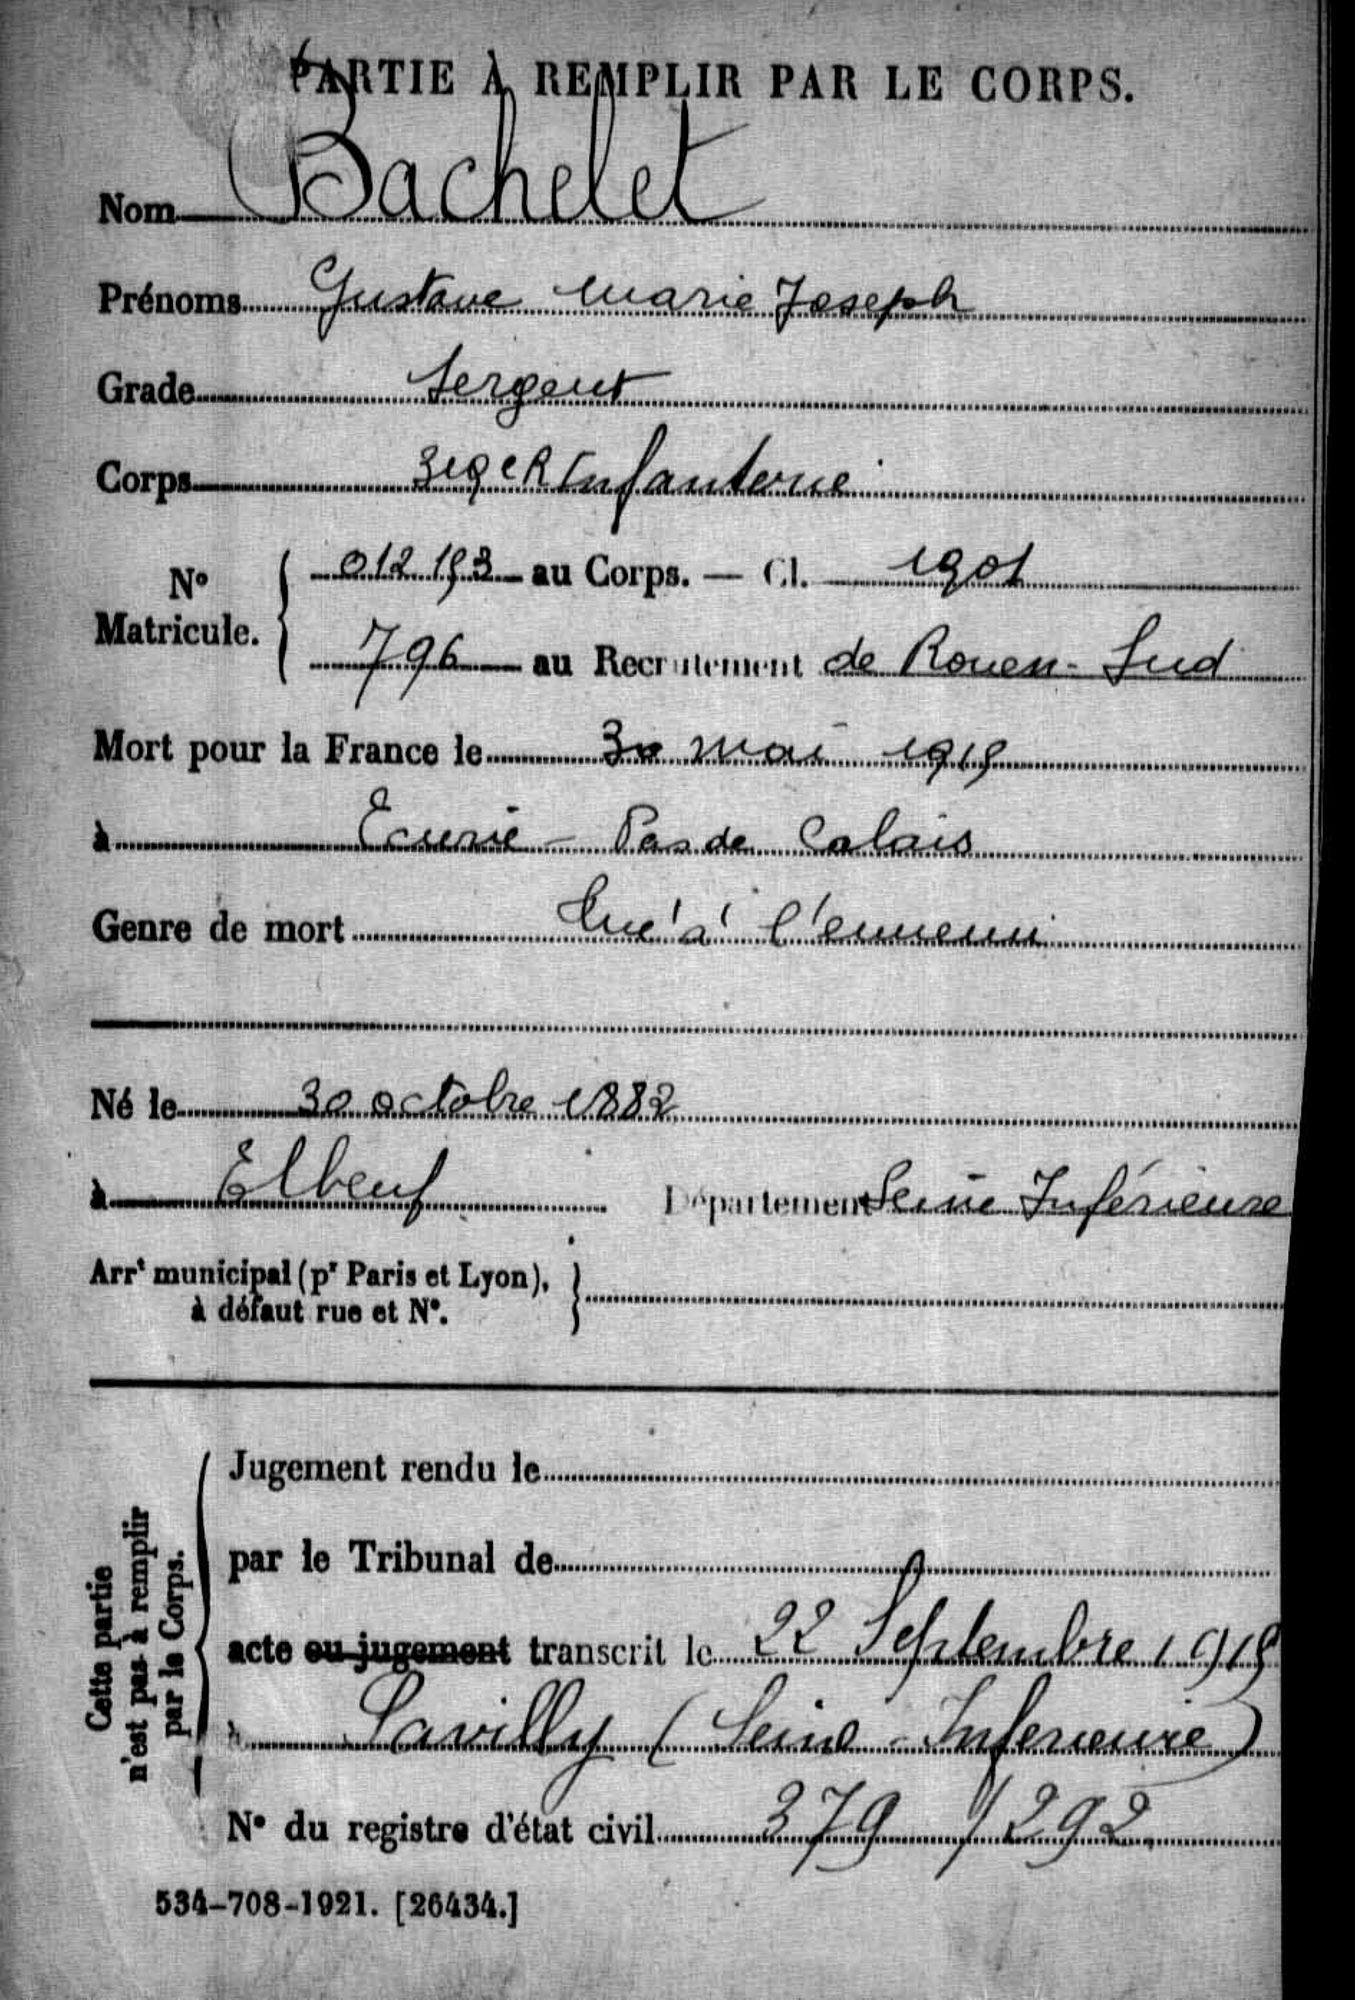 PARTIE À REMPLIR PAR LE CORPS.
Nom Bachelet
Prénoms Gustave Marie Joseph
Grade Sergent
Corps 319e R Infanterie
N° Matricule. { 012 153 au Corps. — Cl. 1901
796 au Recrutement de Rouen-Sud
Mort pour la France le 30 mai 1915
à Ecurie - Pas de Calais
Genre de mort Tué à l'ennemi
Né le 30 octobre 1882
à Elbeuf Département Seine Inférieure
Arrt municipal (pr Paris et Lyon),
à défaut rue et N°.
Cette partie
n'est pas à remplir
par le Corps.
Jugement rendu le
par le Tribunal de
acte ou jugement transcrit le 22 Septembre 1915
à Pavilly (Seine-Inferieure)
N° du registre d'état civil 379/292
534-708-1921. [26434.]